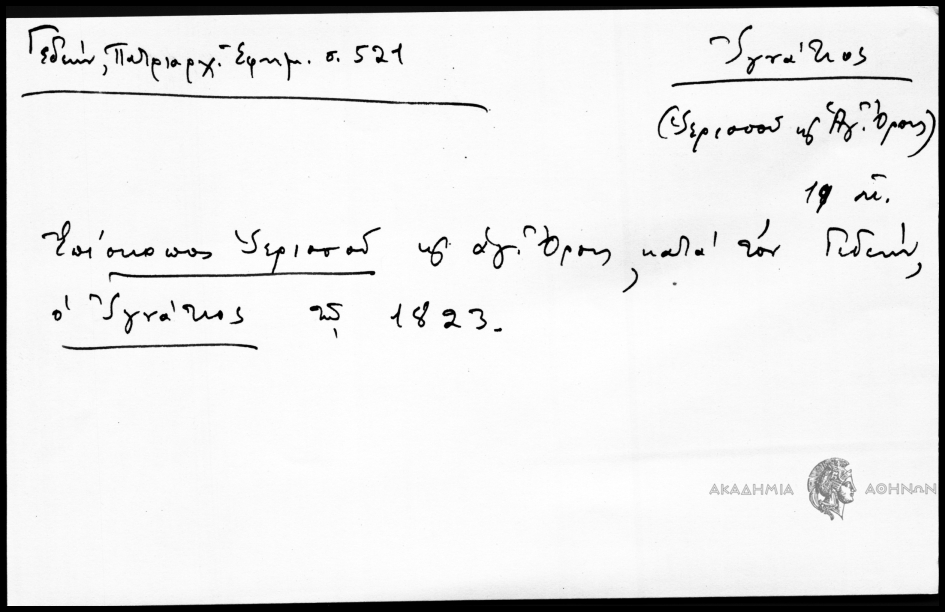 Γεδεών, Πατριαρχ. Ἐφημ. σ. 521
Ἰγνάτιος
(Ἱερισσοῦ καὶ Ἁγ. Ὄρους)
19 αἰ.
Ἐπίσκοπος Ἱερισσοῦ καὶ ἁγ. Ὄρους, κατὰ τὸν Γεδεών,
ὁ Ἰγνάτιος τῷ 1823.
ΑΚΑΔΗΜΙΑ ΑΘΗΝΩΝ